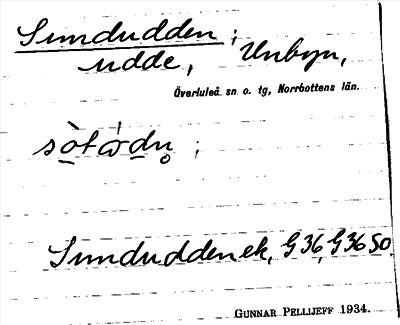 Sundudden;
udde, Unbyn,
Överluleå sn o. tg, Norrbottens län.
Sundudden ek, G36, G36 SO.
GUNNAR PELLIJEFF 1934.